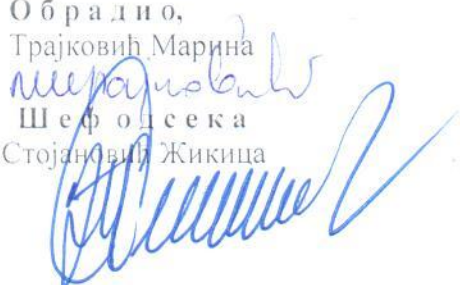 Обрадио,
Трајковић Марина
Шеф одсека
Стојановић Жикица